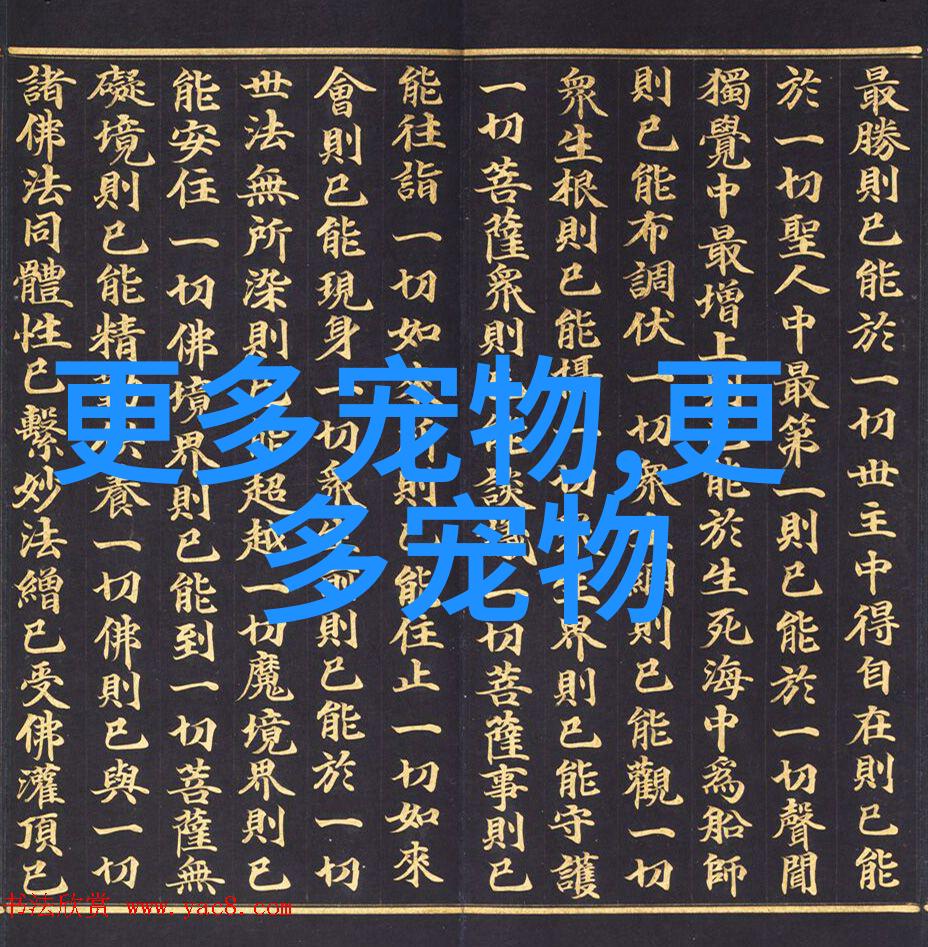 最勝則已能於一切世主中得自在則已能
於一切聖人中最第一則已能於一切聲聞
獨覺中最增上則已能於生死海中爲船師
則已能布調伏一切衆生網則已能觀一切
衆生根則已能攝一切衆生界則已能守護
一切菩薩衆則已能談議一切菩薩事則已
能往詣一切如來所則已能住止一切如來
會則已能現身一切衆生前則已能於一切
世法無所染則已能超越一切魔境界則已
能安住一切佛境界則已能到一切菩薩無
礙境則已能精勤供養一切佛則已與一切
諸佛法同體性已繫妙法繒已受佛灌頂已
更多宠物,更
多宠物
书法欣赏 www.yac8.com